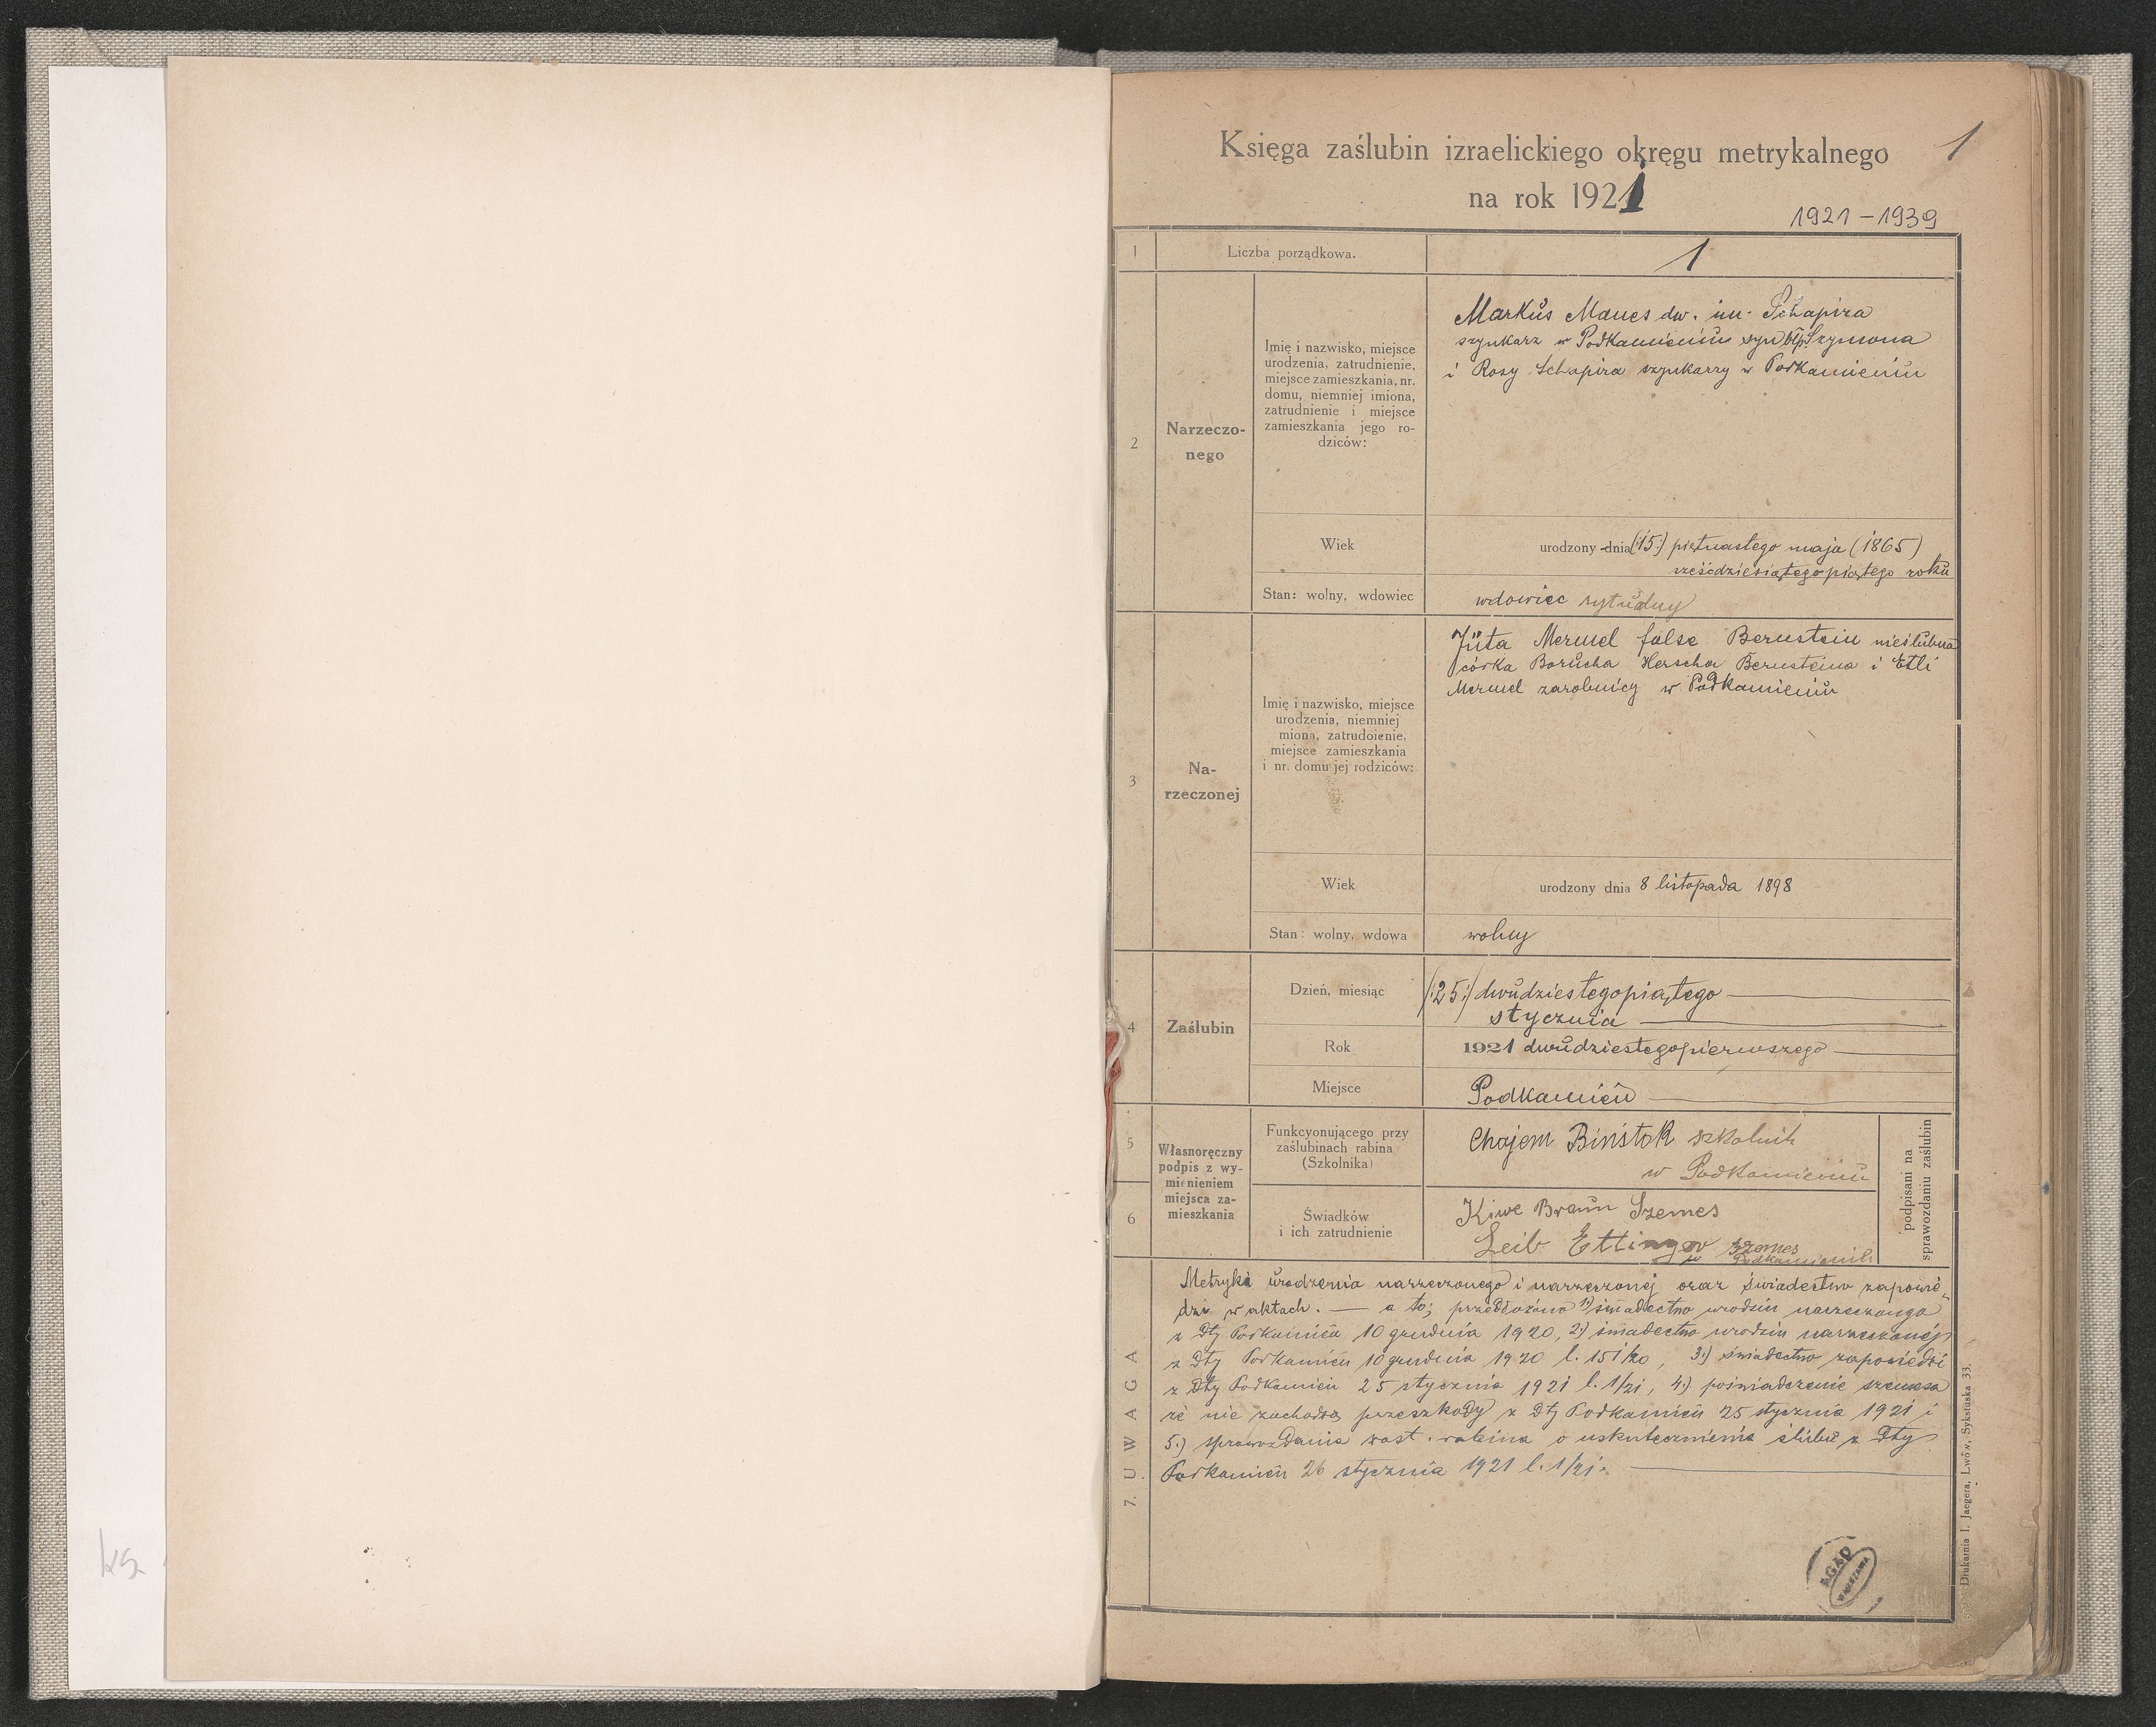 Księga zaślubin izraelickiego okręgu metrykalnego
1
na rok 1921
1921-1939
1
Liczba porządkowa.
1
2
Narzeczo-
nego
Imię i nazwisko, miejsce
urodzenia, zatrudnienie,
miejsce zamieszkania, nr.
domu, niemniej imiona,
zatrudnienie i miejsce
zamieszkania jego ro-
dziców:
Markus Manes dw. im. Schapira
szynkarz w Podkamieniu syn błp Szymona
i Rosy Schapira szynkarzy w Podkamieniu
Wiek
urodzony dnia (15.) piętnastego maja (1865)
sześćdziesiątegopiątego roku
Stan: wolny, wdowiec
wdowiec rytualny
3
Na-
rzeczonej
Imię i nazwisko, miejsce
urodzenia, niemniej
miona, zatrudoienie,
miejsce zamieszkania
i nr. domu jej rodziców:
Jüta Mermel false Bernstein nieślubna
córka Borucha Herscha Bernsteina i Etli
Mermel zarobnicy w Podkamieniu
Wiek
urodzony dnia 8 listopada 1898
Stan: wolny, wdowa
wolny
4
Zaślubin
Dzień, miesiąc
/:25:/ dwudziestegopiątego
stycznia
Rok
1921 dwudziestegopierwszego
Miejsce
Podkamień
5
6
Własnoręczny
podpis z wy-
mienieniem
miejsca za-
mieszkania
Funkcyonującego przy
zaślubinach rabina
(Szkolnika)
Chajem Binstok szkolnik
w Podkamieniu
Świadków
i ich zatrudnienie
Kiwe Braun Szemes
Leib Ettinger szemes
w Podkamieniu
podpisani na
sprawozdaniu zaślubin
7. UWAGA
Metryki urodzenia narzeczonego i narzeczonej oraz świadectwo zapowie„
dzi w aktach. — a to; przedłożono 1) świadectwo urodzin narzeczonego
z dty Podkamień 10 grudnia 1920, 2.) świadectwo urodzin narzeczonej
z dty Podkamień 10 grudnia 1920 l. 151/20, 3.) świadectwo zapowiedzi
z dty Podkamień 25 stycznia 1921 l. 1/21, 4.) poświadczenie szemesa
że nie zachodzą przeszkody z dty Podkamień 25 stycznia 1921 i
5.) sprawozdania zast. rabina o uskutecznieniu ślubu z dty
Podkamień 26 stycznia 1921 l. 1/21.
AGAD
WARSZAWA
Drukarnia I. Jaegera, Lwów, Sykstuska 33.